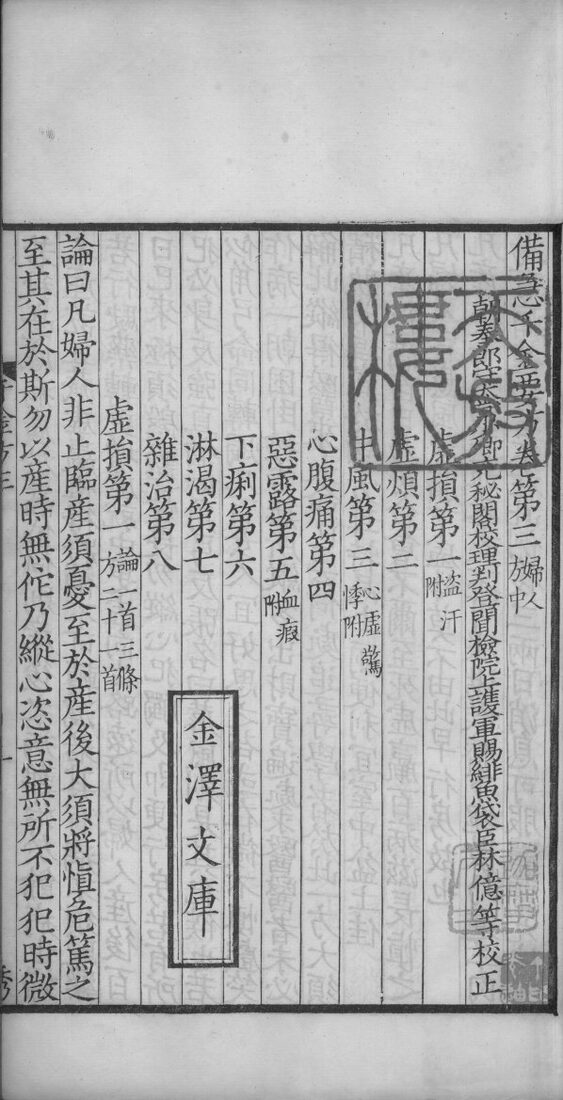 備急千金要方卷第三 婦人方中
朝奉郎守太常少卿充秘閣校理判登聞檢院上護軍賜緋魚袋臣林億等校正
虛損第一 盜汗附
虛煩第二
中風第三 心虛驚悸附
心腹痛第四
惡露第五 血瘕附
下痢第六
淋渴第七
雜治第八
虛損第一 論一首三條方二十一首
論曰凡婦人非止臨産須憂至於産後大須將慎危篤之
至其在於斯勿以産時無佗乃縱心恣意無所不犯犯時微
金澤文庫